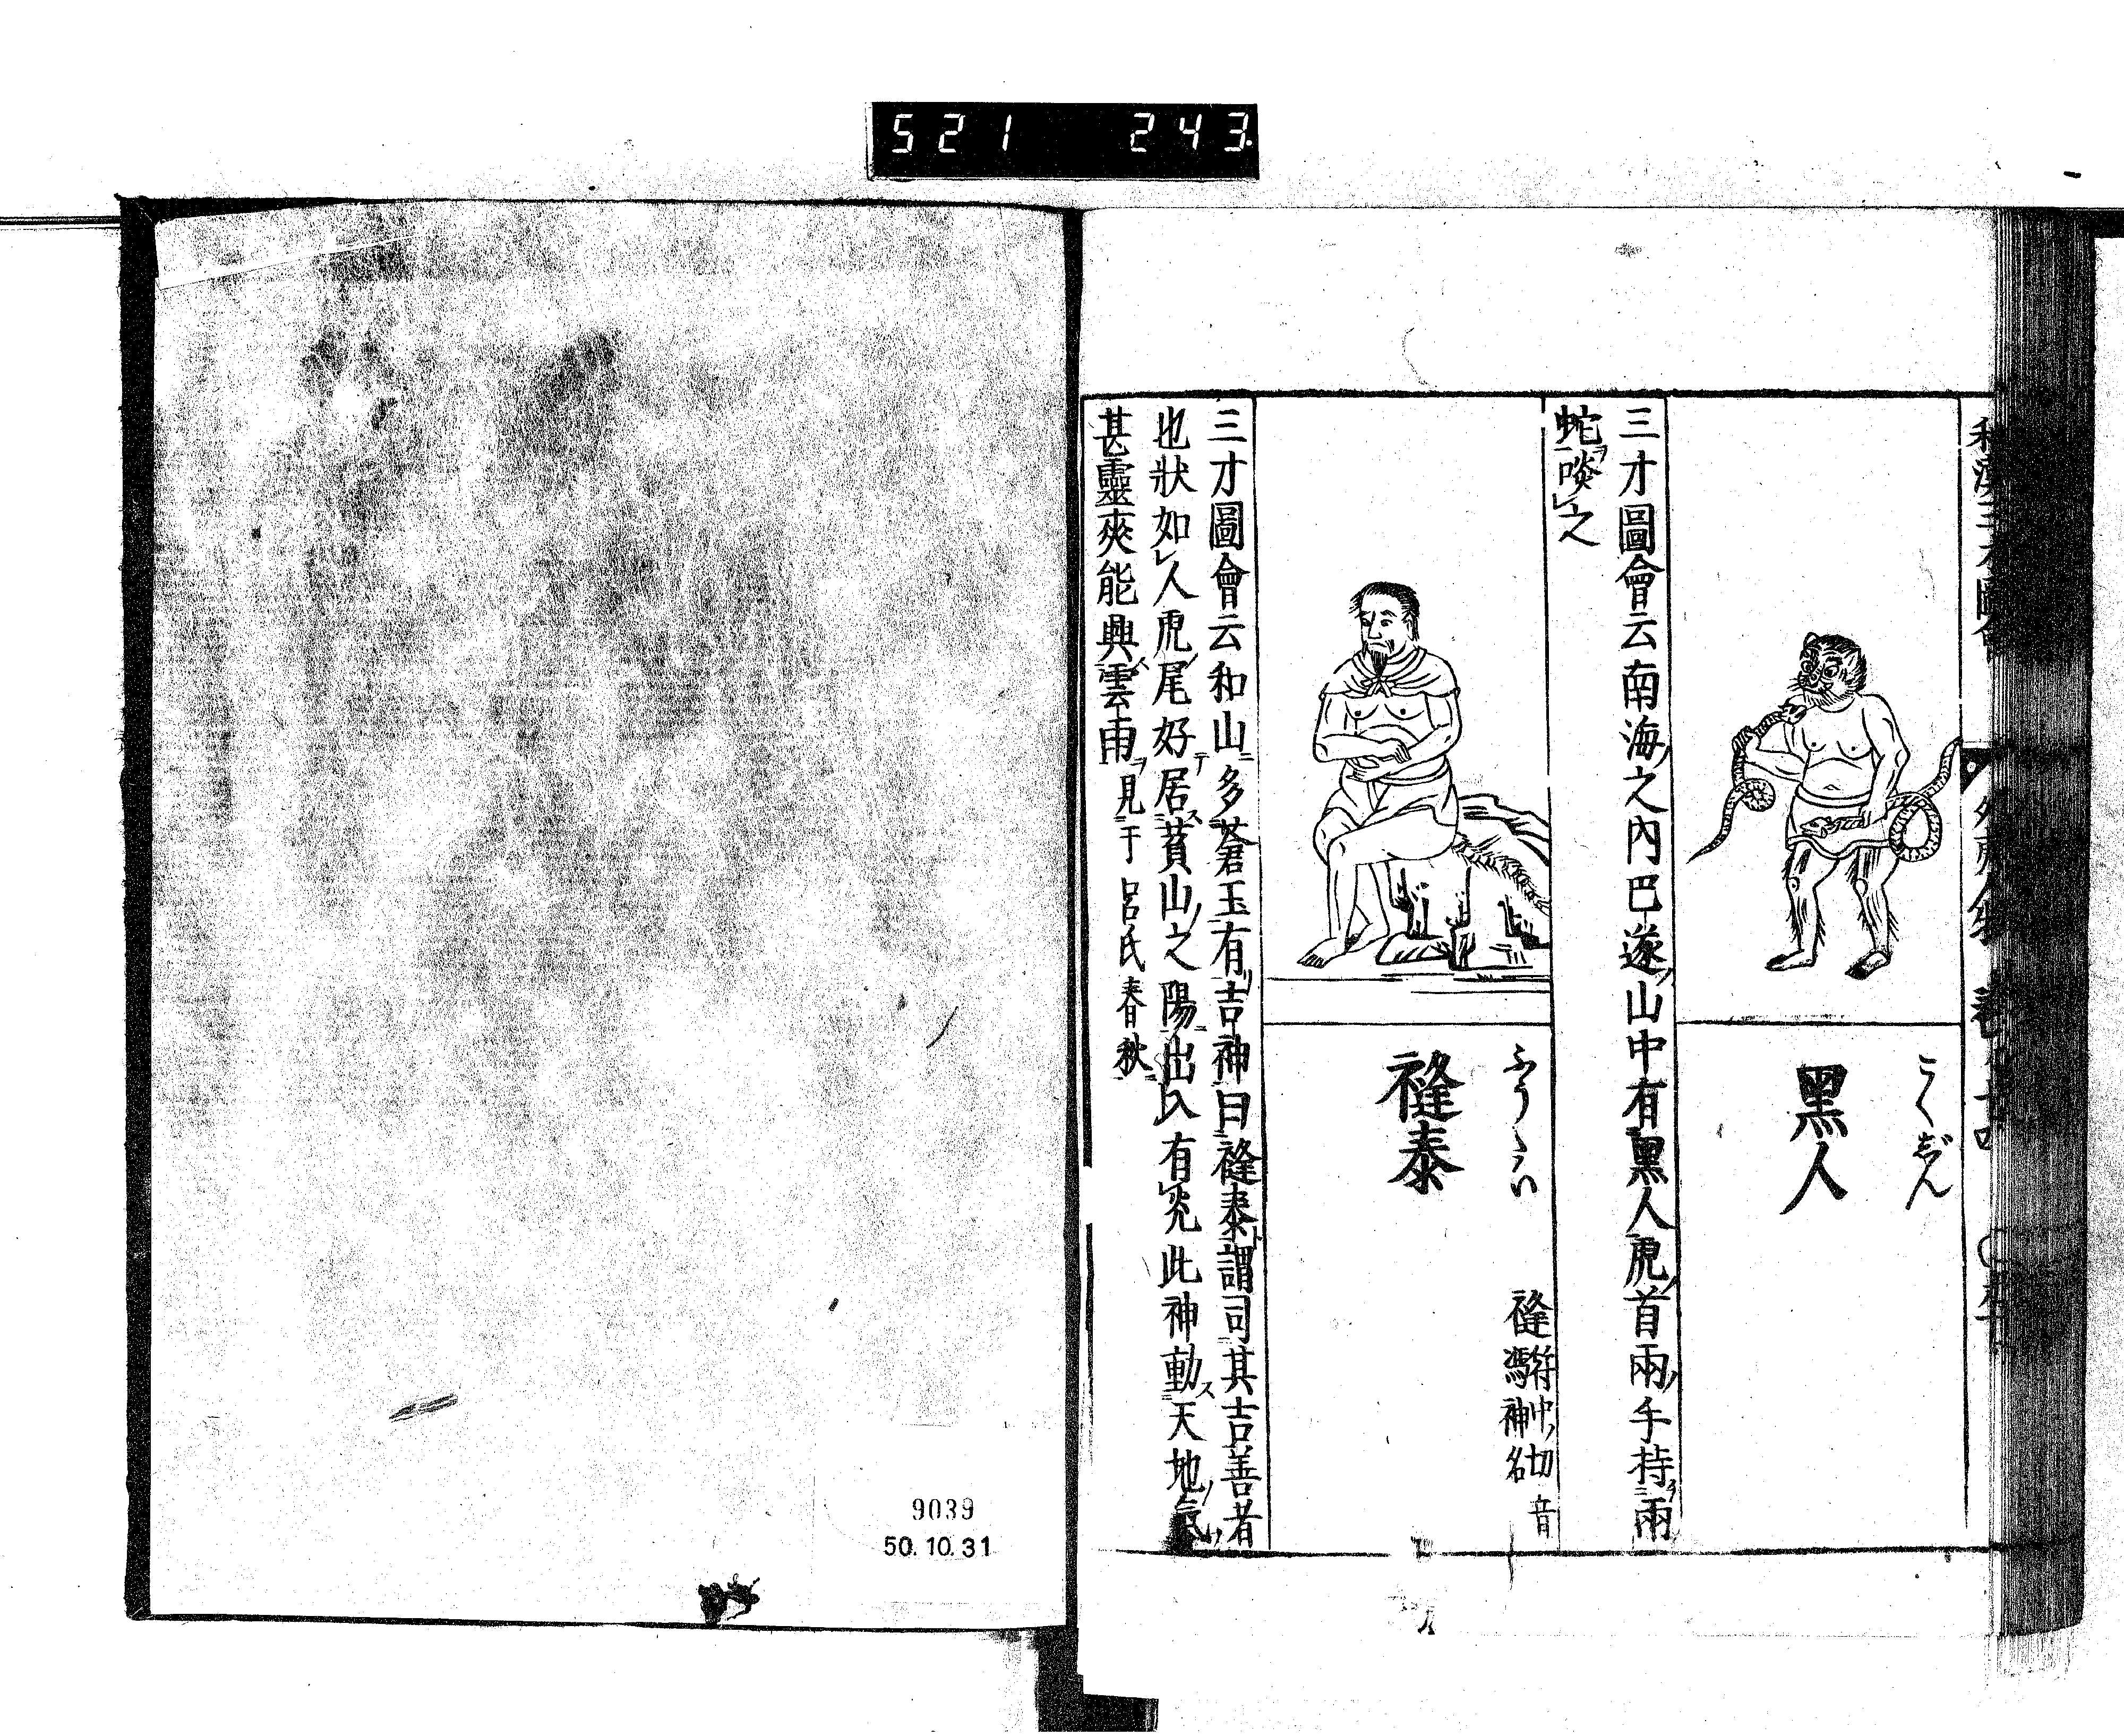 521 243
こくぢん
黑人
三才圖會云南海之內巴遂山中有黑人虎首兩手持兩
蛇啖之
ふうたい
䙜泰
符中切 音
馮神名
三才圖會云和山多蒼玉有吉神曰泰謂司其吉善者
也狀如人虎尾好居萯山之陽出入有光此神動天地氣
甚靈爽能興雲雨見于呂氏春秋
9039
50.10.31